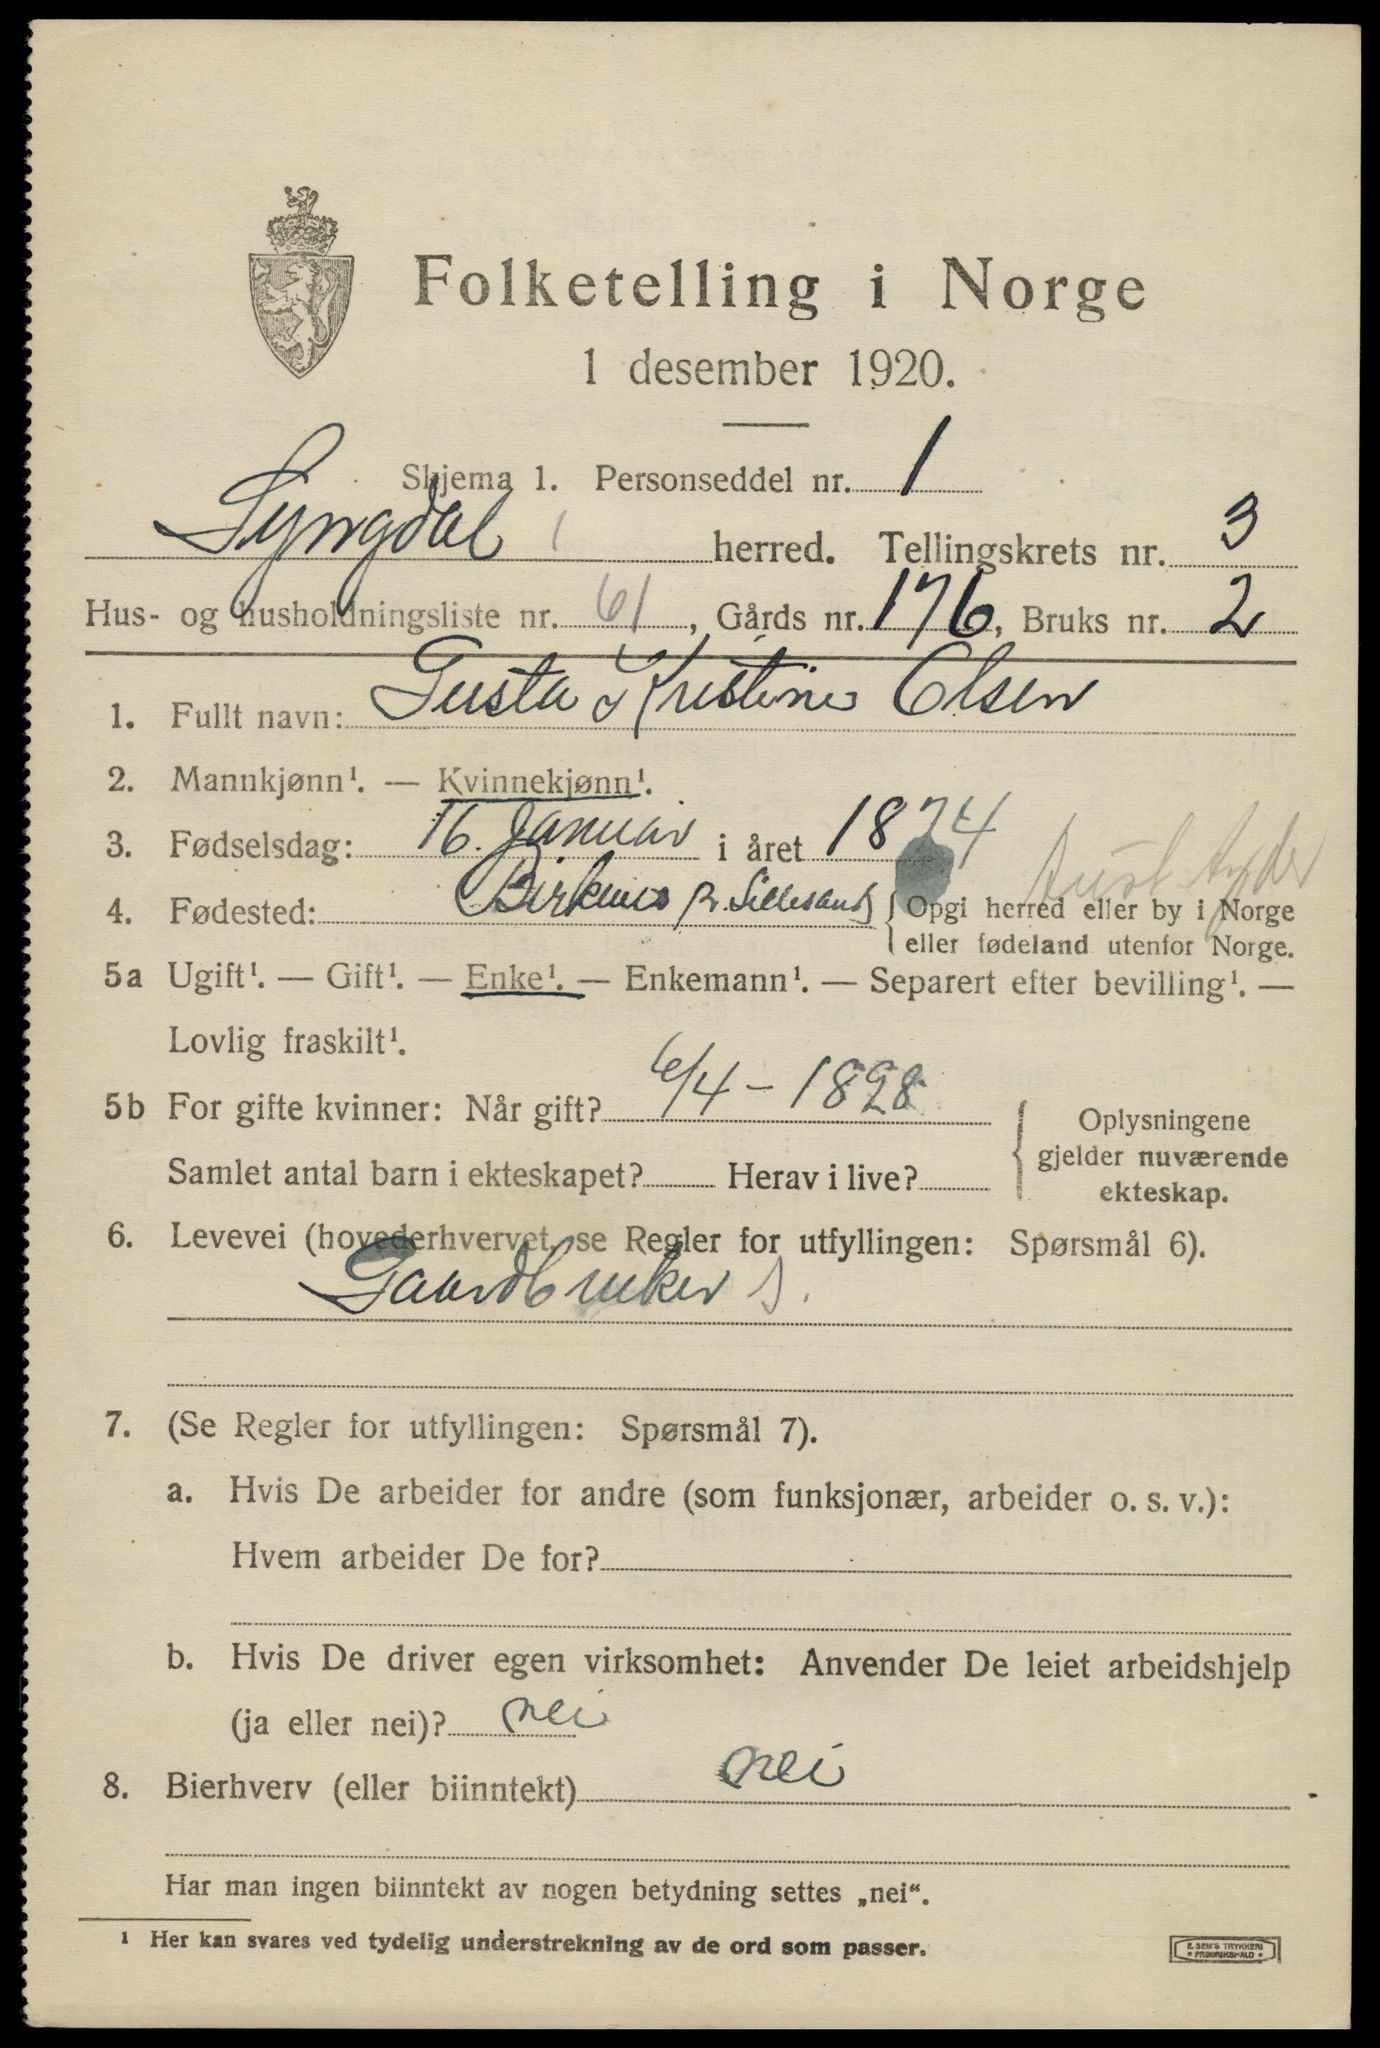 Folketelling i Norge
1 desember 1920.
Skjema 1. Personseddel nr. 1
Lyngdal herred. Tellingskrets nr. 3
Hus- og husholdningsliste nr. 61, Gårds nr. 176, Bruks nr. 2
1. Fullt navn: Gusta Kristine Olsen
2. Mannkjønn¹. — Kvinnekjønn¹.
3. Fødselsdag: 16. Januar i året 1874
Aust Agder
4. Fødested: Birkenes pr. Lillesand { Opgi herred eller by i Norge
eller fødeland utenfor Norge.
5a Ugift¹. — Gift¹. — Enke¹. — Enkemann¹. — Separert efter bevilling¹. —
Lovlig fraskilt¹.
5b For gifte kvinner: Når gift? 6/4 - 1898
Samlet antal barn i ekteskapet? Herav i live?
{ Oplysningene
gjelder nuværende
ekteskap.
6. Levevei (hovederhvervet, se Regler for utfyllingen: Spørsmål 6).
Gaardbruker s.
7. (Se Regler for utfyllingen: Spørsmål 7).
a. Hvis De arbeider for andre (som funksjonær, arbeider o. s. v.):
Hvem arbeider De for?
b. Hvis De driver egen virksomhet: Anvender De leiet arbeidshjelp
(ja eller nei)? nei
8. Bierhverv (eller biinntekt) nei
Har man ingen biinntekt av nogen betydning settes „nei“.
¹ Her kan svares ved tydelig understrekning av de ord som passer.
E. SEM'S TRYKKERI
FREDRIKSHALD